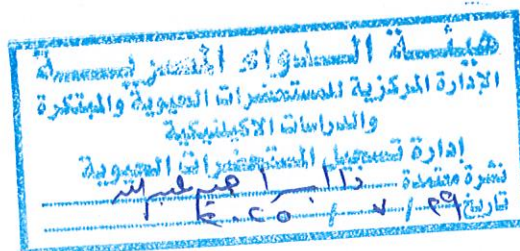 هيئة الدواء المصرية
الإدارة المركزية للمستحضرات الحيوية والمبتكرة
والدراسات الاكلينيكية
إدارة تسجيل المستحضرات الحيوية
نشرة معتمدة
تاريخ ٢٩ / ٧ / ٢٠٢٥